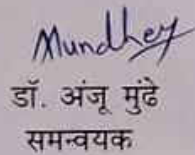 Mundhey
डॉ. अंजू मुंढे
समन्वयक